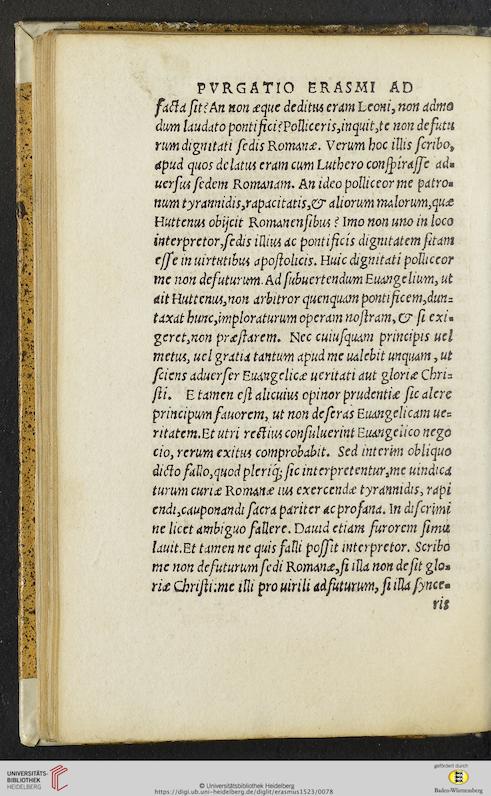 PVRGATIO ERASMI AD
facta sit? An non æque deditus eram Leoni, non admo
dum laudato pontifici? Polliceris, inquit, te non defutu
rum dignitati sedis Romanæ. Verum hoc illis scribo,
apud quos delatus eram cum Luthero conspirasse ad-
uersus sedem Romanam. An ideo polliceor me patro-
num tyrannidis, rapacitatis, & aliorum malorum, quæ
Huttenus obijcit Romanensibus? Imo non uno in loco
interpretor, sedis illius ac pontificis dignitatem sitam
esse in uirtutibus apostolicis. Huic dignitati polliceor
me non defuturum. Ad subuertendum Euangelium, ut
ait Huttenus, non arbitror quenquam pontificem, dun-
taxat hunc, imploraturum operam nostram, & si exi-
geret, non præstarem. Nec cuiusquam principis uel
metus, uel gratia tantum apud me ualebit unquam, ut
sciens aduerser Euangelicæ ueritati aut gloriæ Chri-
sti. E tamen est alicuius opinor prudentiæ sic alere
principum fauorem, ut non deseras Euangelicam ue-
ritatem. Et utri rectius consuluerint Euangelico nego
cio, rerum exitus comprobabit. Sed interim obliquo
dicto fallo, quod pleriq; sic interpretentur, me uindica
turum curiæ Romanæ ius exercendæ tyrannidis, rapi
endi, cauponandi sacra pariter ac profana. In discrimi
ne licet ambiguo fallere. Dauid etiam furorem simu
lauit. Et tamen ne quis falli possit interpretor. Scribo
me non defuturum sedi Romanæ, si illa non desit glo-
riæ Christi: me illi pro uirili adfuturum, si illa synce-
ris
UNIVERSITÄTS-
BIBLIOTHEK
HEIDELBERG
© Universitätsbibliothek Heidelberg
https://digi.ub.uni-heidelberg.de/diglit/erasmus1523/0078
gefördert durch
Baden-Württemberg